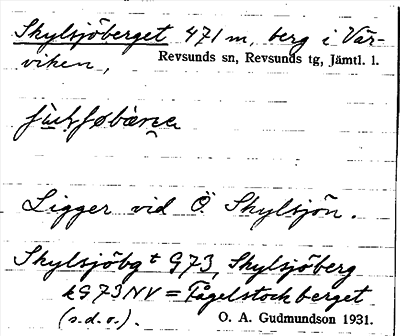 Skylsjöberget 471 m, berg i Vår-
viken, Revsunds sn, Revsunds tg, Jämtl. l.
Ligger vid Ö Skylsjön.
Skylsjöbgt G73, Skylsjöberg
k G73NV = Fågelstockberget
(s.d.o.). O. A. Gudmundson 1931.